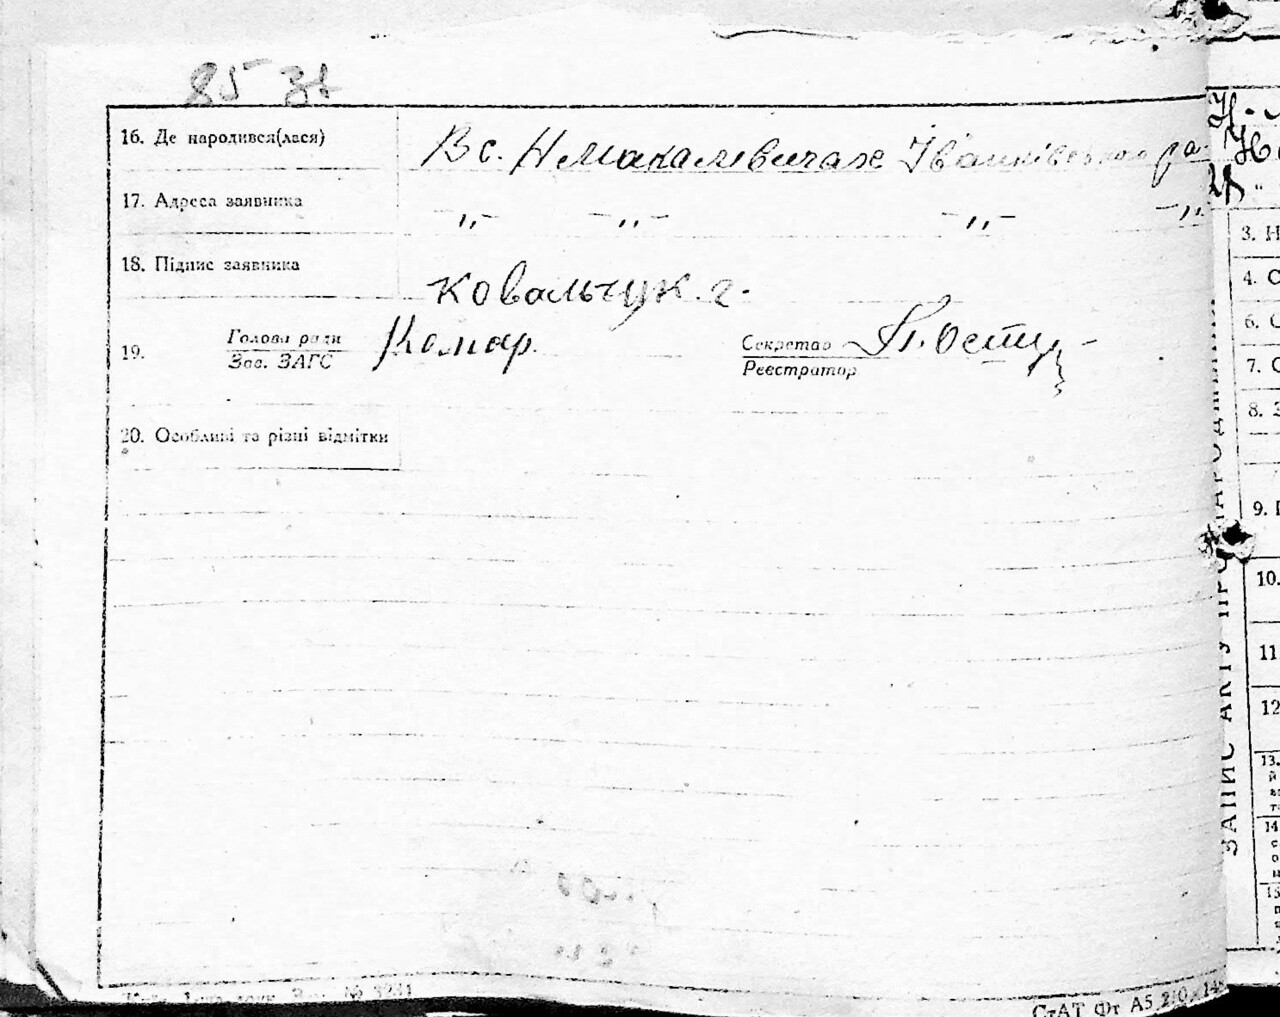 85 31
16. Де народився(лася) В с. Н Макалевичах Іванківського ра
17. Адреса заявника -„- -„- -„- -„
18. Підпис заявника
ковальчук. г.
19. Голова ради Комар. Секретар
Зав. ЗАГС Реєстратор
20. Особливі та різні відмітки
№ 3231
СтАТ Фт А5 210×148
3. Н
4. С
6. С
7. С
8. З
9.
10.
11
12
13.
14
15
ЗАПИС АКТУ ПРО НАРОДЖЕННЯ